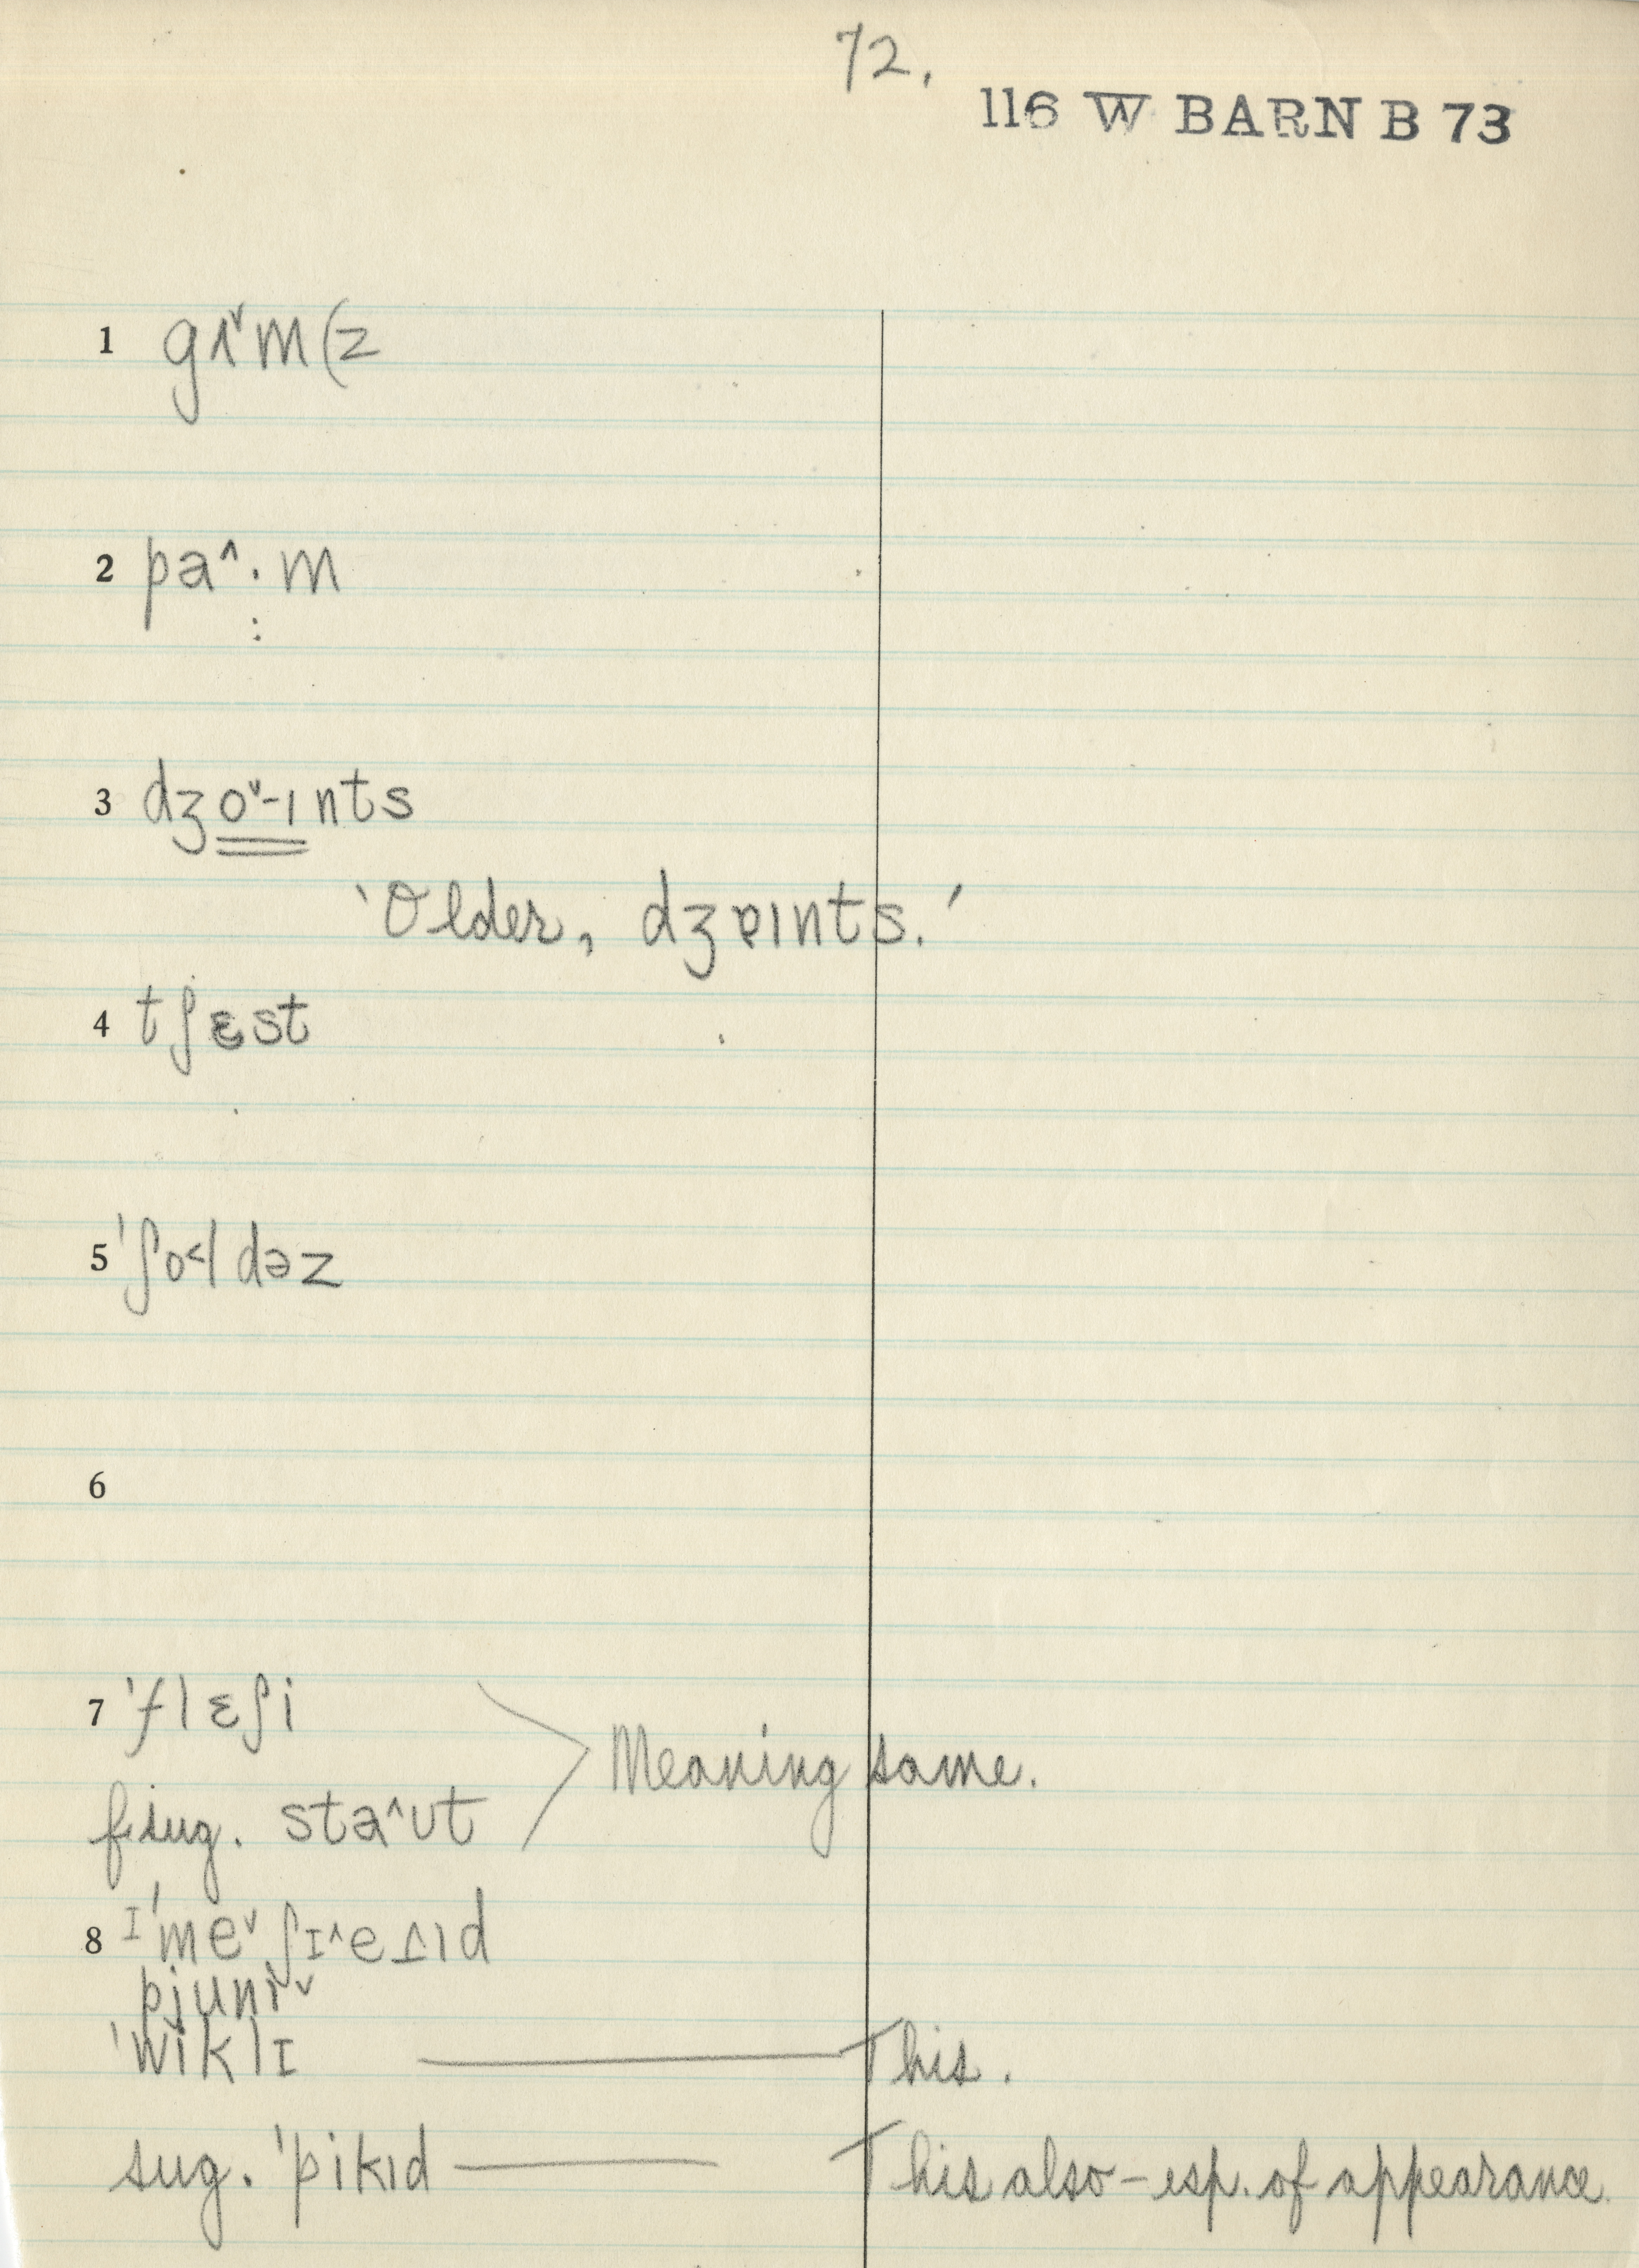 72.
116 W BARN B 73
1 gɪ˅m(z
2 pa^·m
:
3 dʒo˅-ɪnts
'Older, dʒɐɪnts.'
4 tʃɛst
5 'ʃo<ldəz
6
7 'flɛʃi
Meaning same.
sug. sta^ʊt
8 ɪ'me˅ʃɪ^eɪd
pjuni˅
'wiklɪ — This.
sug. 'pikɪd — This also – esp. of appearance.